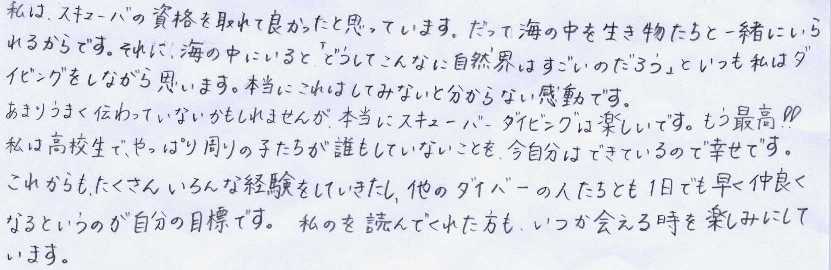 私は、スキューバの資格を取れて良かったと思っています。だって海の中を生き物たちと一緒にいら
れるからです。それに、海の中にいると「どうしてこんなに自然界はすごいのだろう」といつも私はダ
イビングをしながら思います。本当にこれはしてみないと分からない感動です。
あまりうまく伝わっていないかもしれませんが、本当にスキューバーダイビングは楽しいです。もう最高!!
私は高校生で、やっぱり周りの子たちが誰もしていないことを、今自分はできているので幸せです。
これからも、たくさんいろんな経験をしていきたし、他のダイバーの人たちとも1日でも早く仲良く
なるというのが自分の目標です。 私のを読んでくれた方も、いつか会える時を楽しみにして
います。